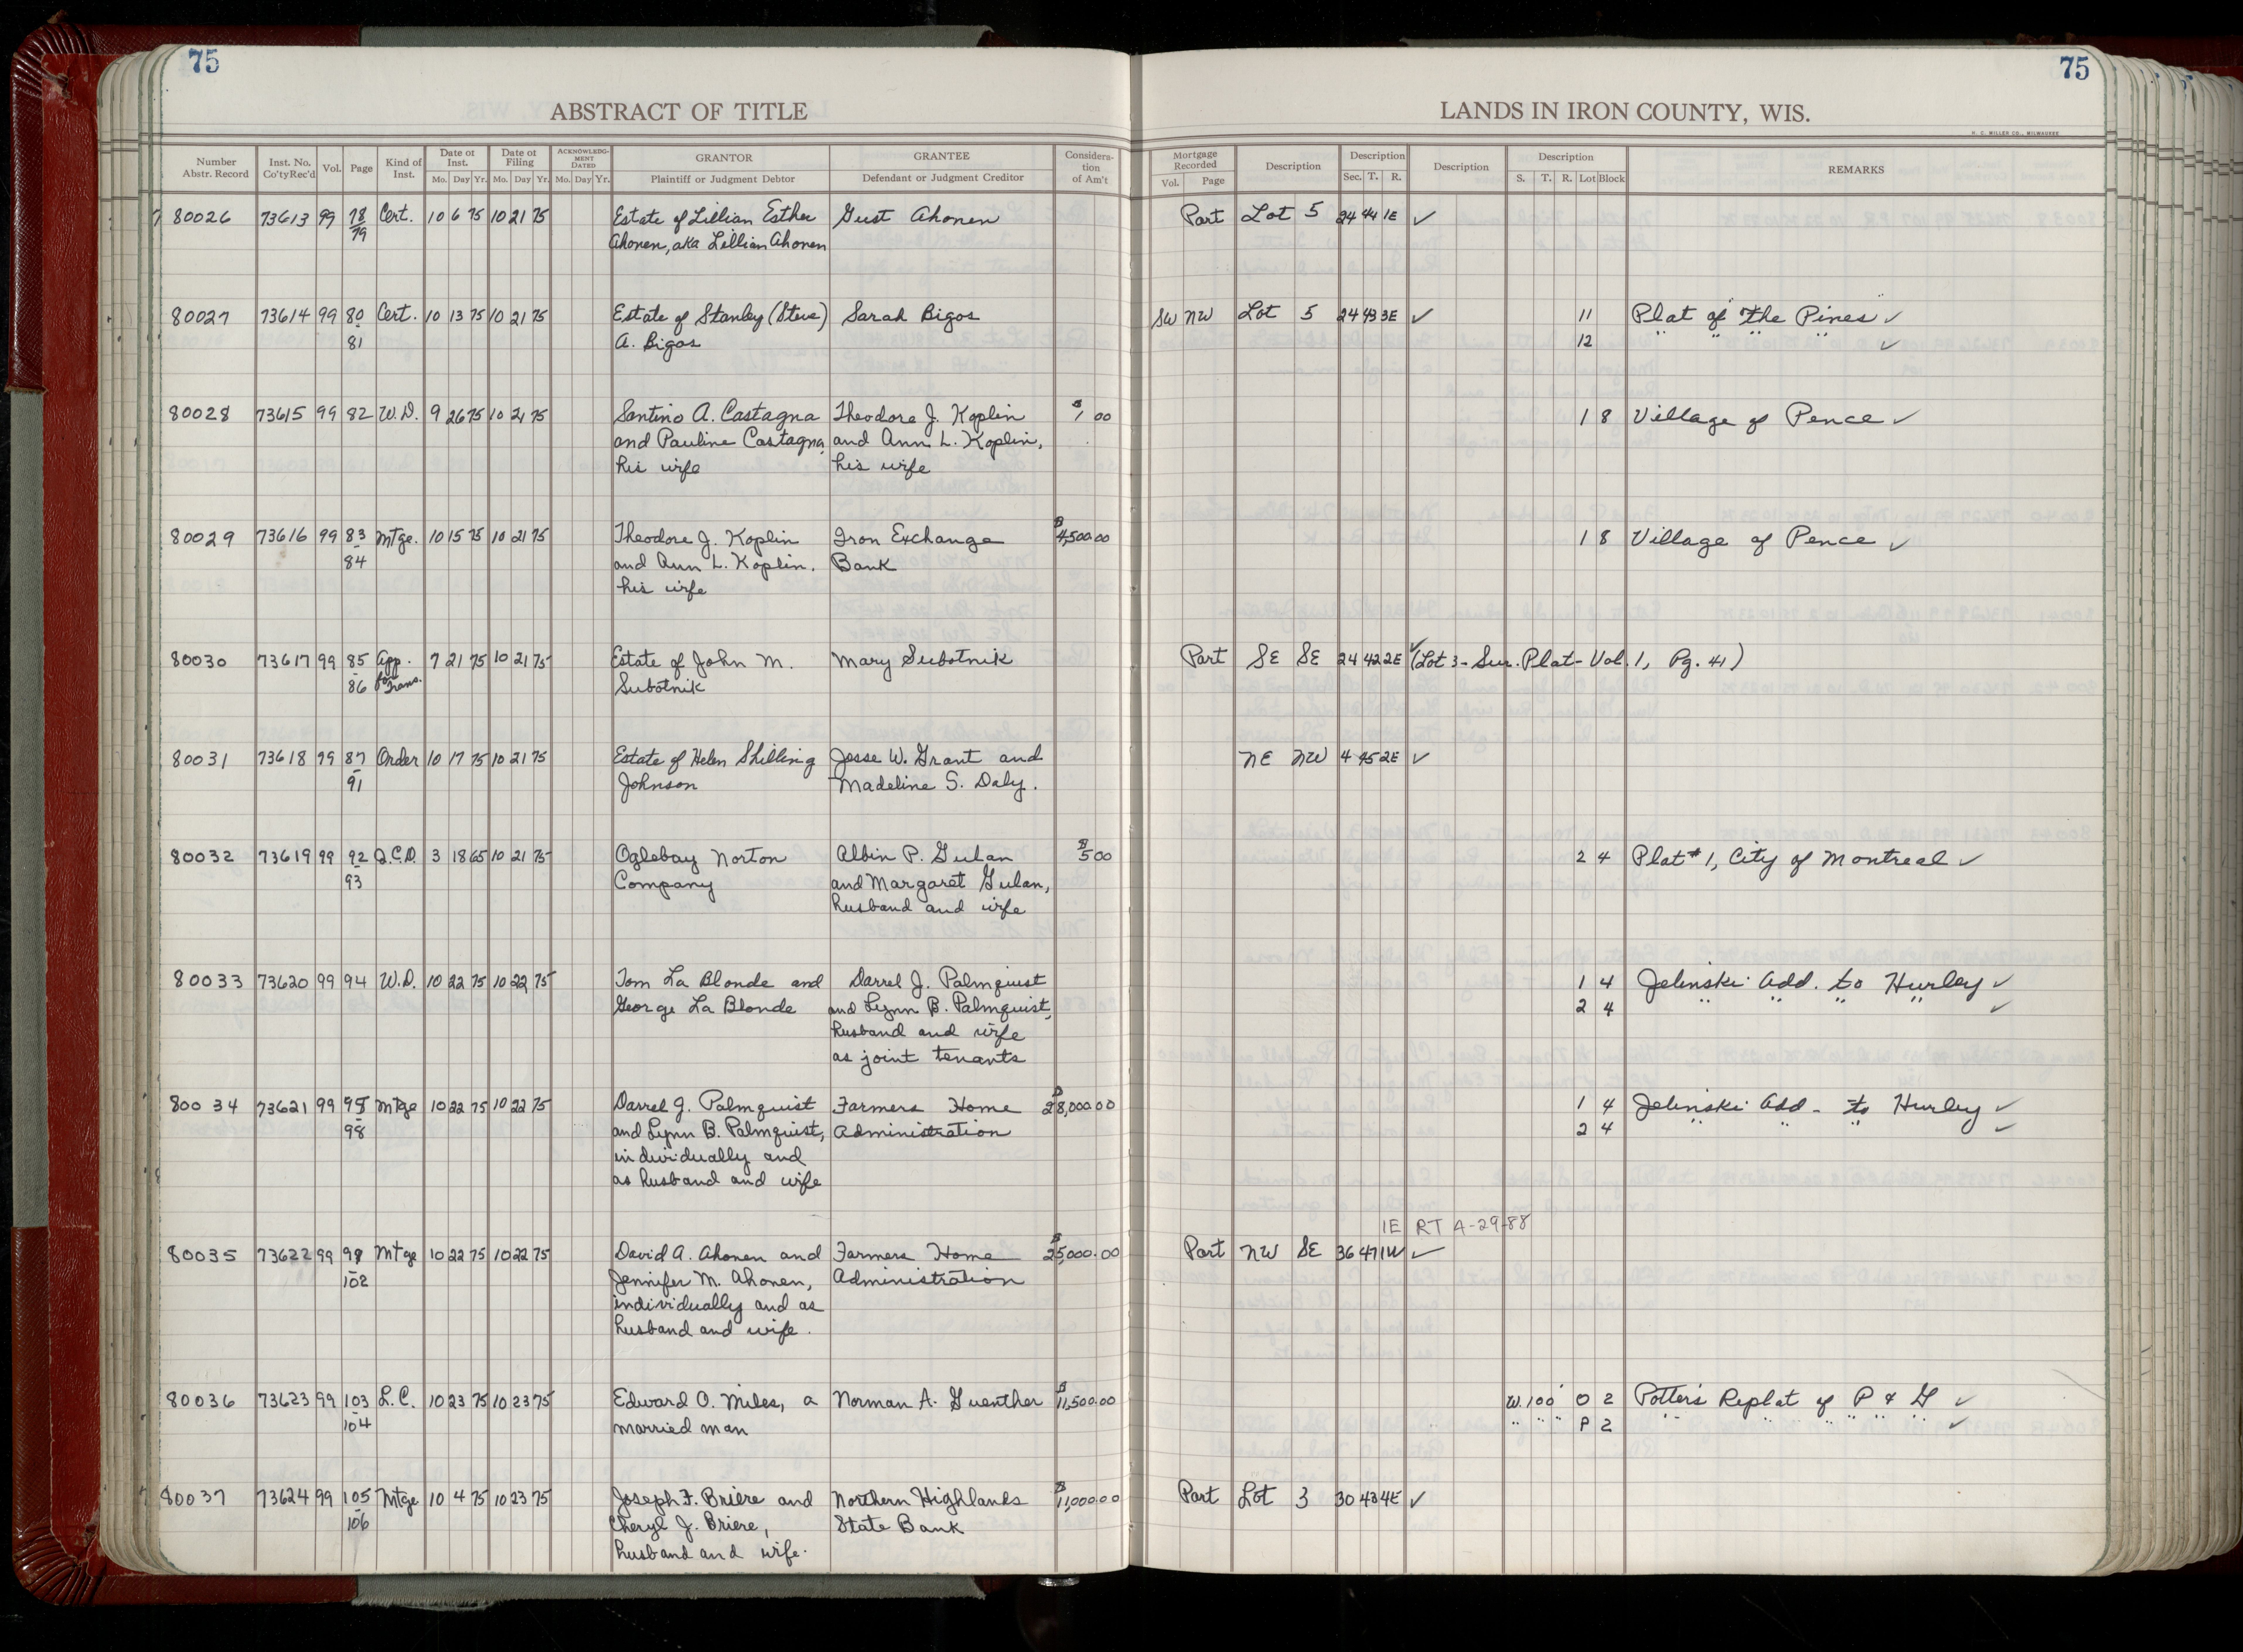 75
ABSTRACT OF TITLE
Number Abstr. Record | Inst. No. Co'ty Rec'd | Vol. | Page | Kind of Inst. | Date of Inst. Mo. Day Yr. | Date of Filing Mo. Day Yr. | ACKNOWLEDG-MENT DATED Mo. Day Yr. | GRANTOR Plaintiff or Judgment Debtor | GRANTEE Defendant or Judgment Creditor | Considera-tion of Am't
75
LANDS IN IRON COUNTY, WIS.
H. C. MILLER CO., MILWAUKEE
Mortgage Recorded Vol. Page | Description | Description Sec. T. R. | Description | Description S. T. R. Lot Block | REMARKS
80026 73613 99 78 Cert. 10 6 75 10 21 75 Estate of Lillian Esther Gust Ahonen Part Lot 5 24 44 1E ✓
79 Ahonen, aka Lillian Ahonen
80027 73614 99 80 Cert. 10 13 75 10 21 75 Estate of Stanley (Steve) Sarah Bigos SW NW Lot 5 24 43 3E ✓ 11 Plat of "The Pines" ✓
81 A. Bigos 12 " " " " ✓
80028 73615 99 82 W.D. 9 26 75 10 21 75 Santino A. Castagna Theodore J. Koplin $1 00 1 8 Village of Pence ✓
and Pauline Castagna, and Ann L. Koplin,
his wife his wife
80029 73616 99 83 Mtge. 10 15 75 10 21 75 Theodore J. Koplin Iron Exchange $4,500.00 1 8 Village of Pence ✓
84 and Ann L. Koplin, Bank
his wife
80030 73617 99 85 App. 7 21 75 10 21 75 Estate of John M. Mary Subotnik Part SE SE 24 42 2E ✓ (Lot 3 - Sur. Plat - Vol. 1, Pg. 41)
86 for Trans. Subotnik
80031 73618 99 87 Order 10 17 75 10 21 75 Estate of Helen Shilling Jesse W. Grant and NE NW 4 45 2E ✓
91 Johnson Madeline S. Daly.
80032 73619 99 92 Q.C.D. 3 18 65 10 21 75 Oglebay Norton Albin P. Gulan $5 00 2 4 Plat #1, City of Montreal ✓
93 Company and Margaret Gulan,
husband and wife
80033 73620 99 94 W.D. 10 22 75 10 22 75 Tom La Blonde and Darrel J. Palmquist 1 4 Jelinski Add. to Hurley ✓
George La Blonde and Lynn B. Palmquist, 2 4 " " " " ✓
husband and wife
as joint tenants
80034 73621 99 95 Mtge 10 22 75 10 22 75 Darrel J. Palmquist Farmers Home $28,000.00 1 4 Jelinski Add. to Hurley ✓
98 and Lynn B. Palmquist, Administration 2 4 " " " ✓
individually and
as husband and wife
1E RT A-29-88
80035 73622 99 99 Mtge 10 22 75 10 22 75 David A. Ahonen and Farmers Home $25,000.00 Part NW SE 36 47 1W ✓
102 Jennifer M. Ahonen, Administration
individually and as
husband and wife.
80036 73623 99 103 L.C. 10 23 75 10 23 75 Edward O. Miles, a Norman A. Guenther $11,500.00 W. 100' O 2 Potter's Replat of P & G ✓
104 married man " " " P 2 " " " " " " ✓
80037 73624 99 105 Mtge 10 4 75 10 23 75 Joseph F. Briere and Northern Highlands $11,000.00 Part Lot 3 30 43 4E ✓
106 Cheryl J. Briere, State Bank
husband and wife.